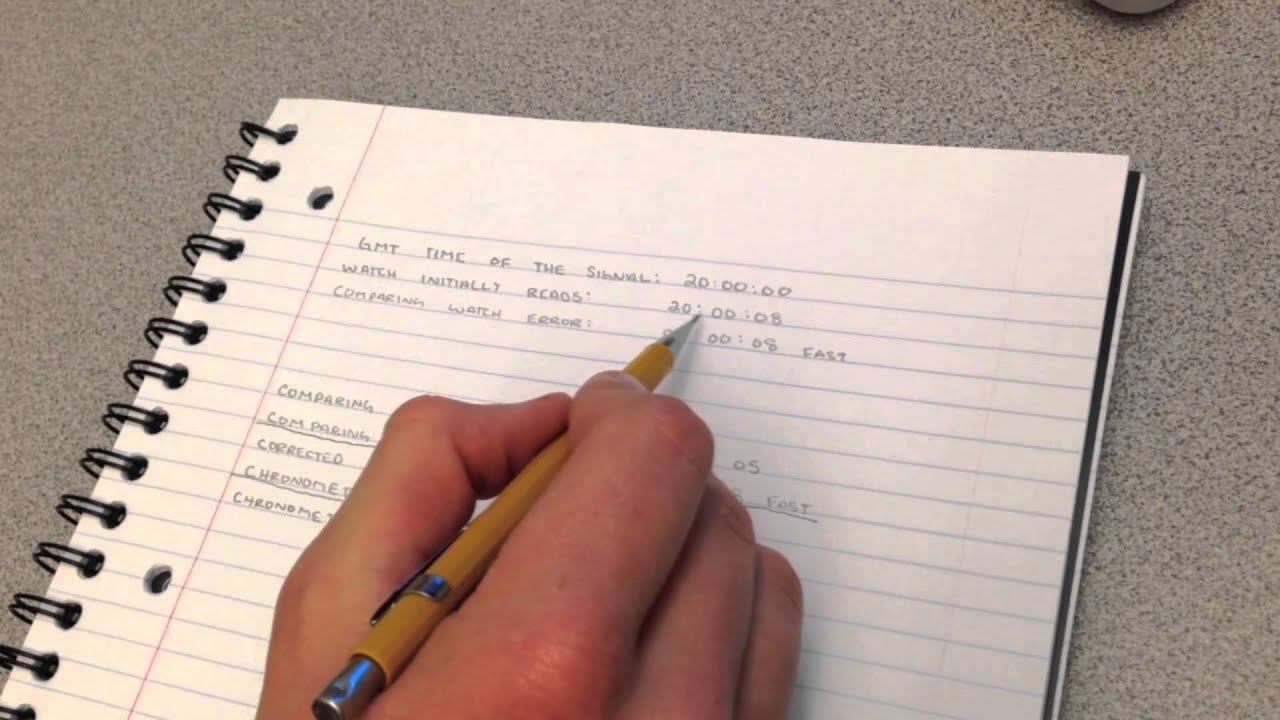 GMT TIME OF THE SIGNAL: 20:00:00
WATCH INITIALLY READS: 20:00:08
COMPARING WATCH ERROR: 00:08 FAST
COMPARING
COMPARING
CORRECTED 05
CHRONOMET FAST
CHRONOMET